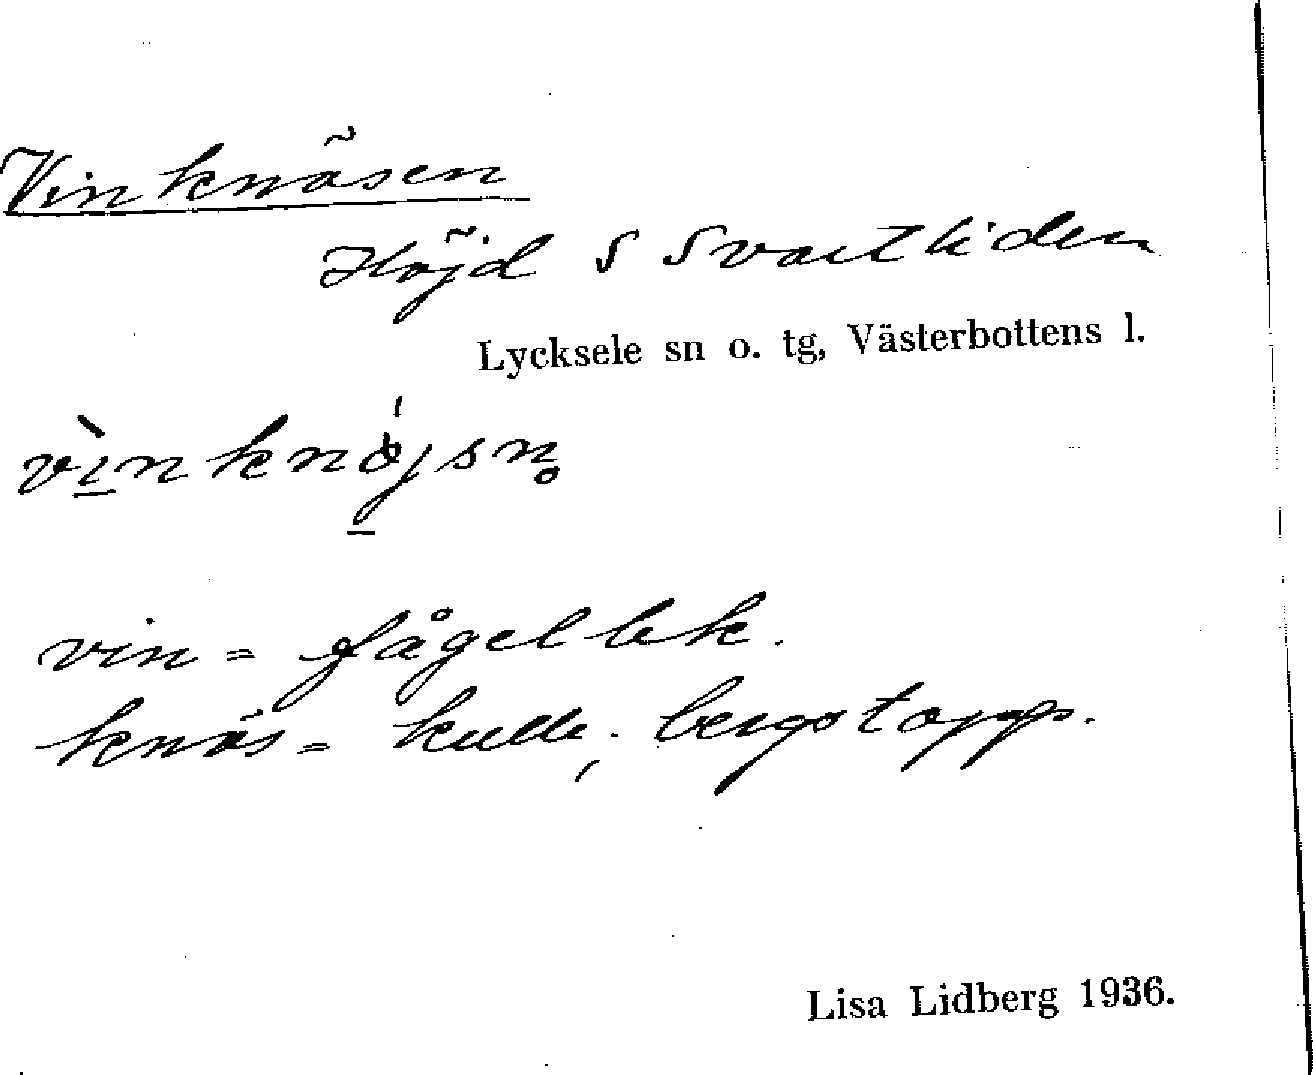 Vinknösen
Höjd S Svartliden
Lycksele sn o. tg, Västerbottens l.
vin = fågellek.
knös = kulle, bergstopp.
Lisa Lidberg 1936.